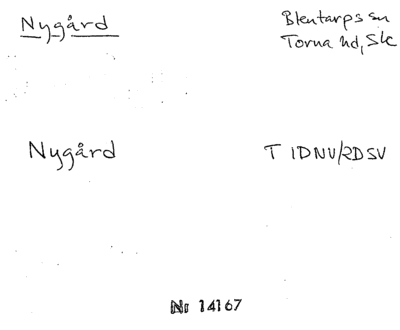 Nygård
Blentarps sn
Torna hd, Sk
Nygård
T IDNV/RDSV
Nr 14167